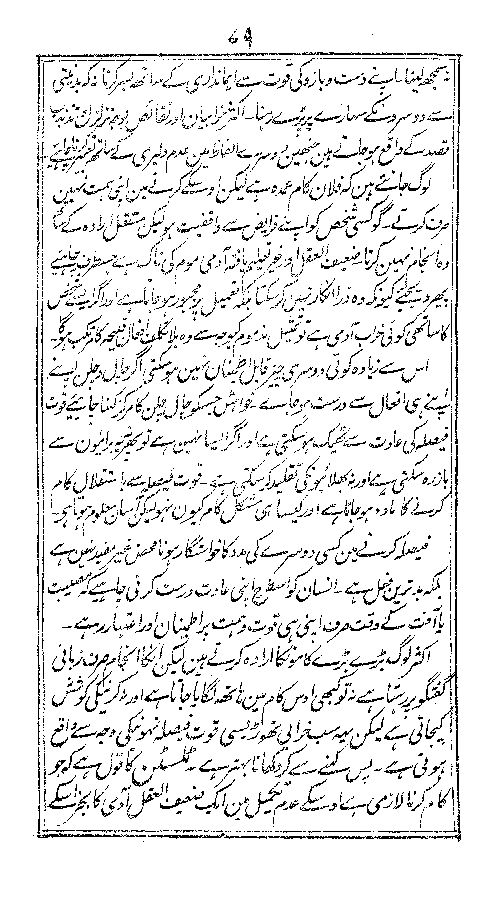 ۶۹
سمجھ لینا۔ اپنے دست و بازو کی قوت سے ایمانداری کے ساتھ بسر کرنا نہ کہ بدنیتی
سے دوسرونکے سہارے پر پڑے رہنا۔ اکثر خرابیان اور نقائص بوجہ تزلزل و تذبذب
قصد کے واقع ہو جاتے ہین جنھین دوسرے الفاظ مین عدم دلیری کے ساتھ تعبیر کرنا چاہیے
لوگ جانتے ہین کہ فلان کام عمدہ ہے لیکن اوسکے کرنے مین اپنی ہمت نہین
صرف کرتے۔ گو کسی شخص کو اپنے فرایض سے واقفیت ہو لیکن مستقل ارادہ کے ساتھ
وہ انجام نہین کرتا۔ ضعیف العقل اور غیر تعلیم یافتہ آدمی موم کی ناک ہے جسطرف چاہیے
پھیر دیجئے کیونکہ وہ ذرا انکار نہین کر سکتا بلکہ تعمیل پر مجبور ہو جاتا ہے اور اگر ایسے شخص
کا ساتھی کوئی خراب آدمی ہے تو تعمیل مذموم کیوجہ سے وہ بلا تکلف افعال قبیحہ کا مرتکب ہوگا۔
اس سے زیادہ کوئی دوسری چیز قابل اطمینان نہین ہو سکتی اگر چال و چلن اپنے
اپنے ہی افعال سے درست ہو جاے۔ خواہش جسکو چال چلن کا مرکز کہنا چاہیے قوت
فیصلہ کی عادت سے ٹھیک ہو سکتی ہے اور اگر ایسا نہین ہے تو پھر نہ برائیون سے
باز رہ سکتی ہے اور نہ بھلائیونکی تقلید کر سکتی ہے۔ قوت فیصلہ سے باستقلال کام
کرنے کا مادہ ہو جاتا ہے اور کیسا ہی مشکل کام کیون نہو لیکن آسان معلوم ہوتا ہو۔
فیصلہ کرنے مین کسی دوسرے کی مدد کا خواستگار ہونا محض غیر مفید نہین ہے
بلکہ بدترین فعل ہے۔ انسان کو اسطرح اپنی عادت درست کرنی چاہیے کہ مصیبت
یا آفت کے وقت صرف اپنی ہی قوت و ہمت پر اطمینان اور اعتبار رہے۔
اکثر لوگ بڑے بڑے کامونکا ارادہ کرتے ہین لیکن اونکا انجام صرف زبانی
گفتگو پر رہتا ہے نہ تو کبھی اوس کام مین ہاتھ لگایا جاتا ہے اور نہ کرنیکی کوشش
کیجاتی ہے لیکن یہ سب خرابی تھوڑی سی قوت فیصلہ نہونیکی وجہ سے واقع
ہوتی ہے۔ پس کہنے سے کر دکھانا بہتر ہے۔ ٹلسٹن کا قول ہے کہ جو
کام کرنا لازمی ہے اوسکے عدم تکمیل مین ایک ضعیف العقل آدمی کا بجز اسکے